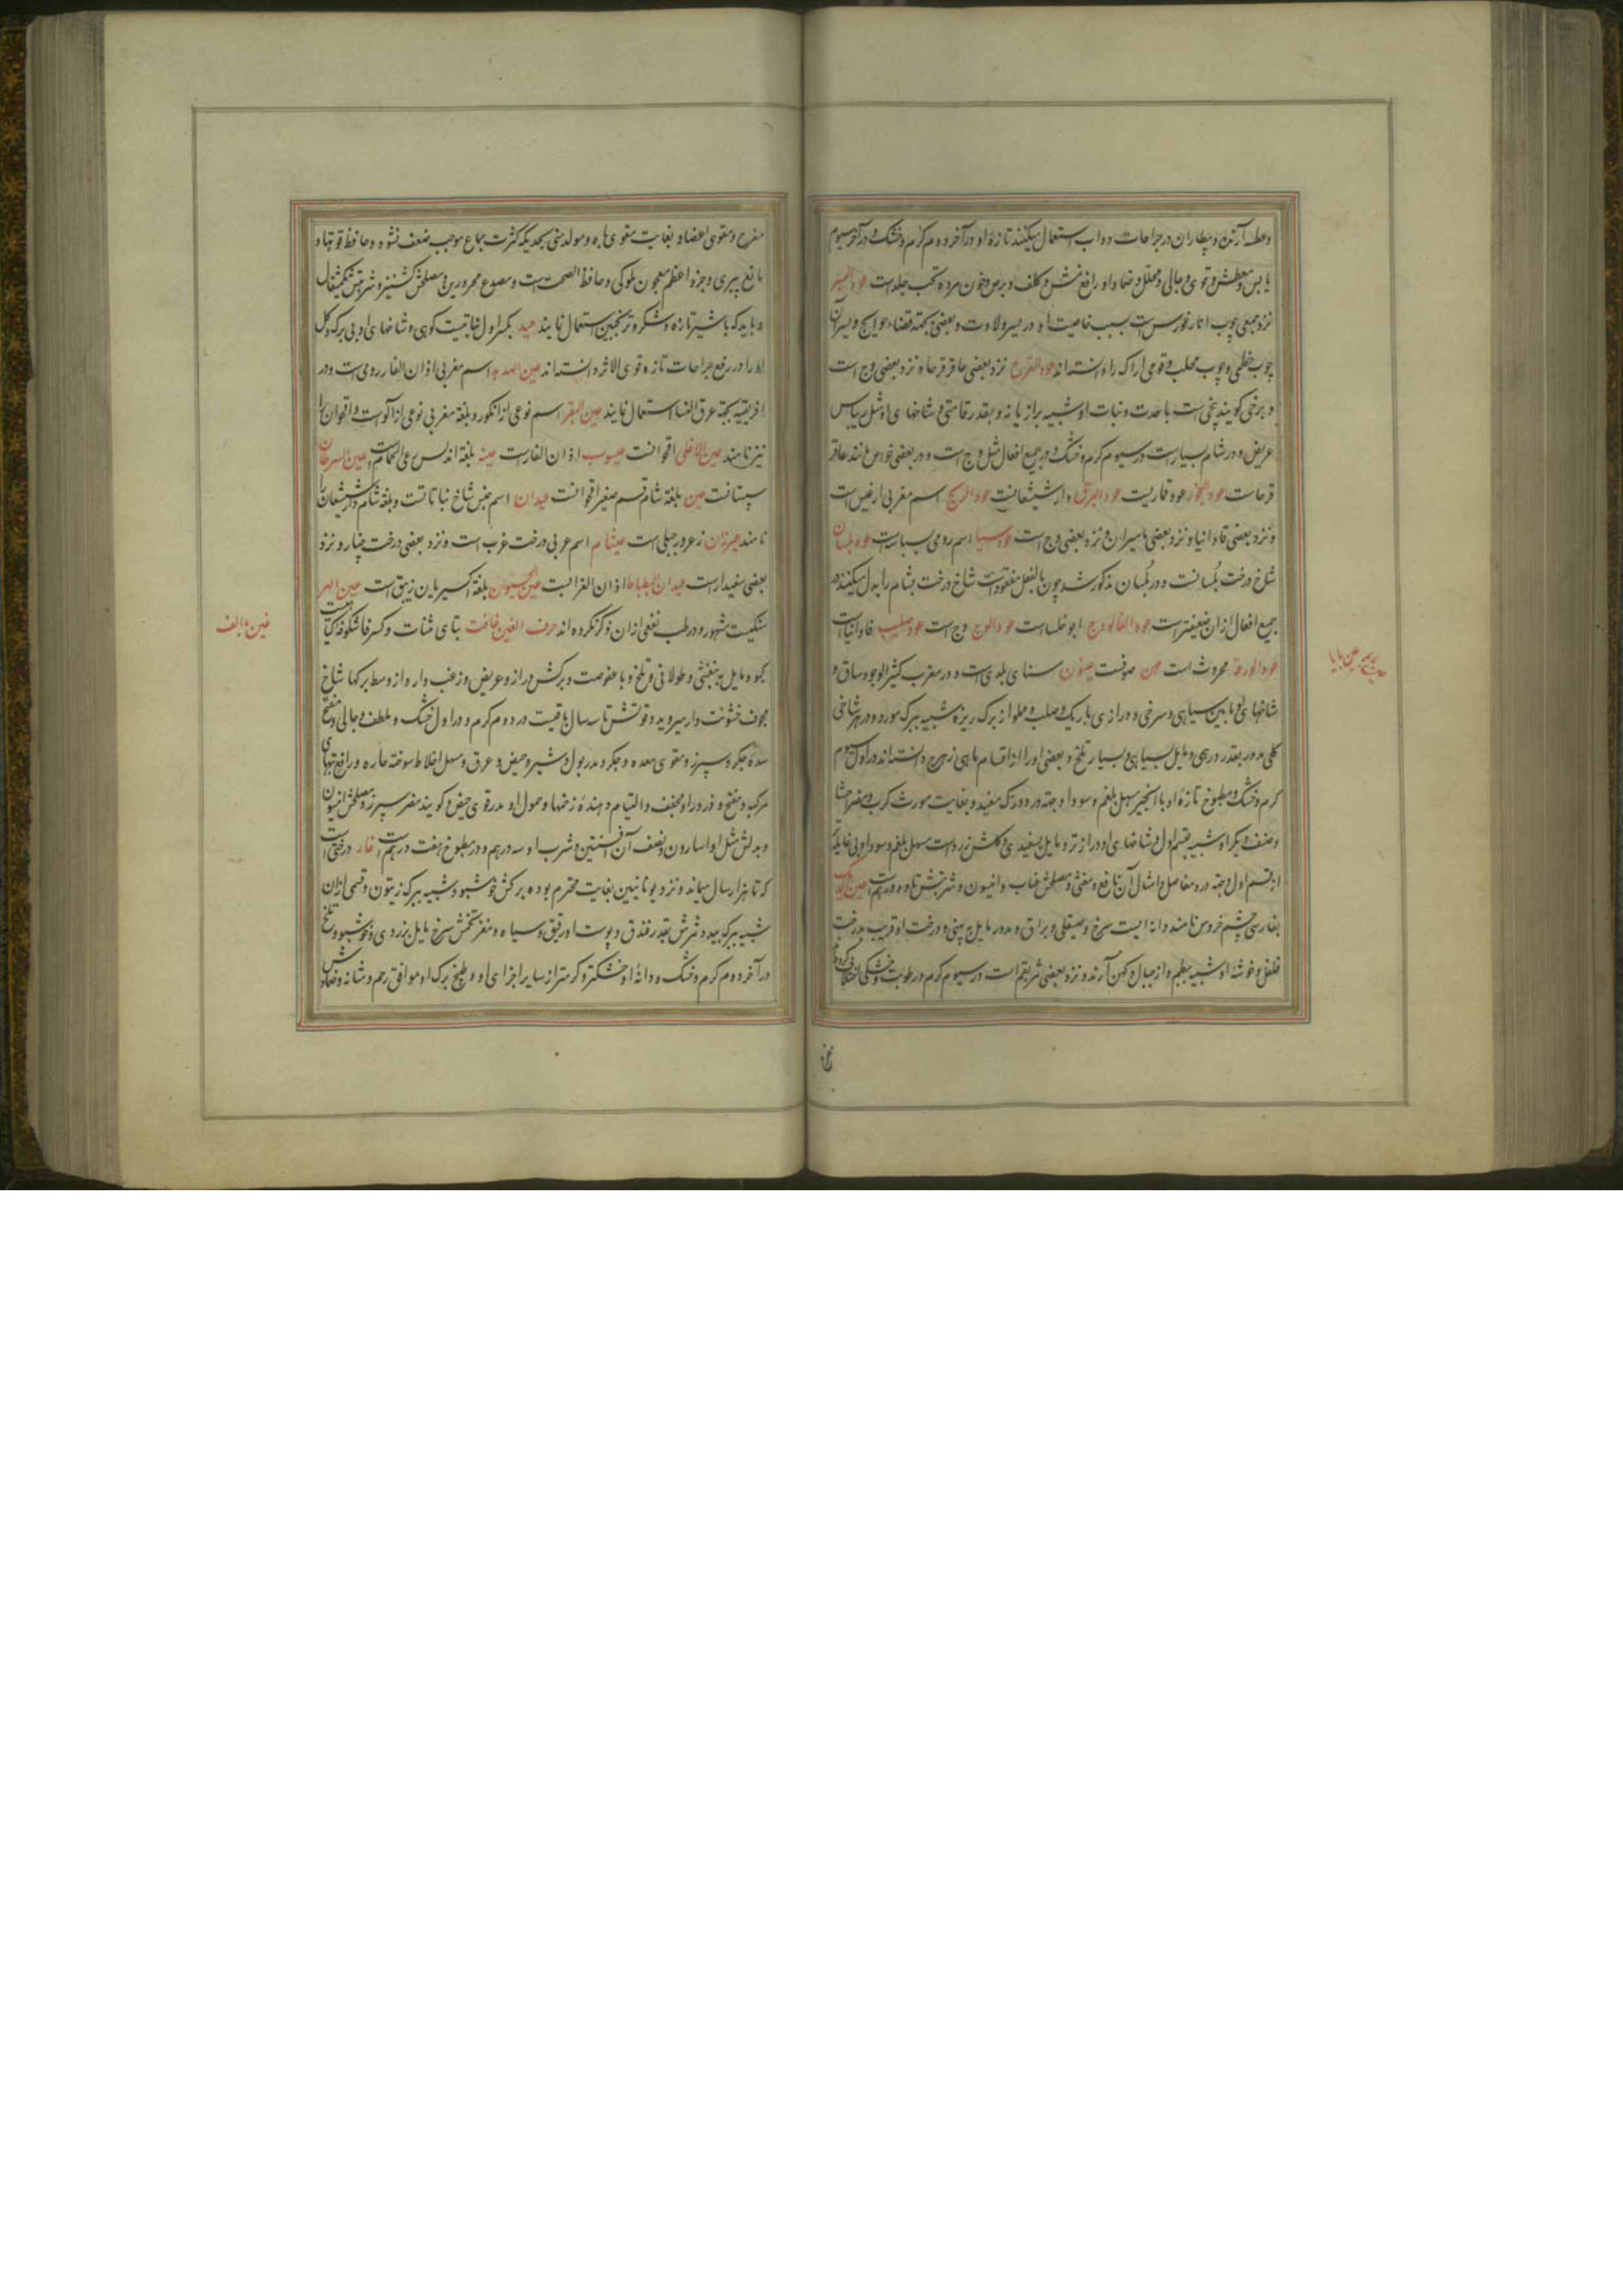 و عطسه آرنده و بیطاران در جراحات دواب استعمال میکنند تازهٔ او در آخر دوم کرم و خشک و در آخر سیوم
یابس و معطش و قوی و جالی و محلل و ضماد او رافع نمش و کلف و برص و خون مرده تحت جلد است عود الیسر
نزد جمعی چوب انار خورس است بسبب خاصیت او در یسر ولادت و بعضی بجهته قضاء حوایج و یسر آن
چوب خطمی و چوب محلب و قومی اراک را دانسته‌اند عود القرح نزد بعضی عاقرقرحا و نزد بعضی وج است
و برخی کویند بیخی است با حدت و نبات او شبیه برازیانه و بقدر قامتی و شاخهای او مثل ریباس
عریض و در شام بسیار است در سیوم کرم و خشک و در جمیع افعال مثل وج است و در بعضی خواص مانند عاقر
قرحاست عود البخور عود قماریست عود البرق دارشیشعانست عود الریح اسم مغربی ارغیس است
و نزد بعضی فاوانیا و نزد بعضی مامیران و نزد بعضی وج است اسم رومی است عود بلسان
شاخ درخت بلسانست و در بلسان مذکور شد و چون بالفعل مفقود است شاخ درخت بشام را بدل میکنند و در
جمیع افعال ازان ضعیفتر است ابو خلساست عود الوج وج است عود صلیب فاوانیاست
عود الورقه محروث است عهن صوفست عینون سنای بلدی است و در مغرب کثیر الوجود و ساق و
شاخهای او مابین سیاهی و سرخی و درازی باریک و صلب و مملو از برک ریزه شبیه ببرک مورد و در هر شاخی
کلی مدور بقدر درهمی و مایل بسیاهی و بسیار تلخ و بعضی او را از اقسام ماهی زهرج دانسته‌اند در اول سیوم
کرم و خشک و مطبوخ تازهٔ او با انجیر مسهل بلغم و سودا و جهته درد ورک مفید و بغایت مورث کرب و مضر احشا
و صنف دیکر او شبیه بقسم اول و شاخهای او دراز تر و مایل بسفیدی و کلش زرد است مسهل بلغم و سودا و بی غایله
از قسم اول و جهته درد مفاصل و امثال آن نافع و مغثی و مصلحش عناب و انیسون و شربتش تا دو درهم است عین الدیک
بفارسی چشم خروس نامند دانه ایست سرخ و صیقلی و براق و مدور مایل به پهنی و درخت او قریب بدرخت
فلفل و خوشهٔ او شبیه ببطم و از جبال دکهن آرند و نزد بعضی شریقم است در سیوم کرم و در رطوبت و خشکی اختلاف کرده‌اند
عین بابا
مفرح و مقوی اعضا و بغایت مقوی باه و مولد منی بحدیکه کثرت جماع موجب ضعف نشود و حافظ قوتها و
مانع پیری و جزو اعظم معجون ملوکی و حافظ الصحت است و مصدع محرورین و مصلحش کشنیز و شربتش یکمثقال
و باید که با شیر تازه و شکر و ترنجبین استعمال نمایند عید بکسر اول نباتیست کوهی و شاخهای او بی برک و کل
او را در رفع جراحات تازه قوی الاثر دانسته‌اند عین الهدهد اسم مغربی اذان الفار رومی است و در
افریقیه بجهته عرق النسا استعمال نمایند عین البقر اسم نوعی از انکور و بلغه مغربی نوعی از آلوست و اقحوان را
نیز نامند عین الاعلی اقحوانست عیسوب اذان الفار است عینه بلغه اندلس حی العالم است عین السرطان
سپستانست عین بلغه شام قسم صغیر اقحوانست عیدان اسم جنس شاخ نباتاتست و بلغه شام دارشیشعان را
نامند عیزران زعرور جبلی است عیثام اسم عربی درخت غرب است و نزد بعضی درخت چنار و نزد
بعضی سفیدار است عیدان البطباط اذان الغزالست عین الحیوان بلغه اکسیریان زیبق است عین الهر
سنکیست مشهور و در طب نفعی ازان ذکر نکرده‌اند حرف الغین غافت بتای مثنات و کسر فا شکوفه کیاهیست
کبود مایل به بنفشی و طولانی و تلخ و با عفوصت و برکش دراز و عریض و زغب دار و از وسط برکها شاخ
مجوف خشونت دار میروید و قوتش تا سه سال باقیست در دوم کرم و در اول خشک و ملطف و جالی و مفتح
سده جکر و سپرز و مقوی معده و جکر و مدر بول و شیر و حیض و عرق و مسهل اخلاط سوخته حاره و رافع تبهای
مرکبه و مفتح و ذرور او مجفف و التیام دهندهٔ زخمها و حمول او مدر قوی حیض و کویند مضر سپرز و مصلحش انیسون
و بدلش مثل او اسارون و نصف آن افسنتین و شرب او سه درهم و در مطبوخ هفت درهم است غار درختی است
که تا هزار سال میماند و نزد یونانیین بغایت محترم بوده برکش خوشبو و شبیه ببرک زیتون و قسمی ازان
شبیه ببرک بید و ثمرش بقدر فندق و پوست او رقیق و سیاه و مغز تخمش سرخ مایل بزردی و خوشبو و تلخ
در آخر دوم کرم و خشک و دانهٔ او خشکتر و کرمتر از سایر اجزای او و طبیخ برک او موافق رحم و مثانه و ضمادش
غین با الف